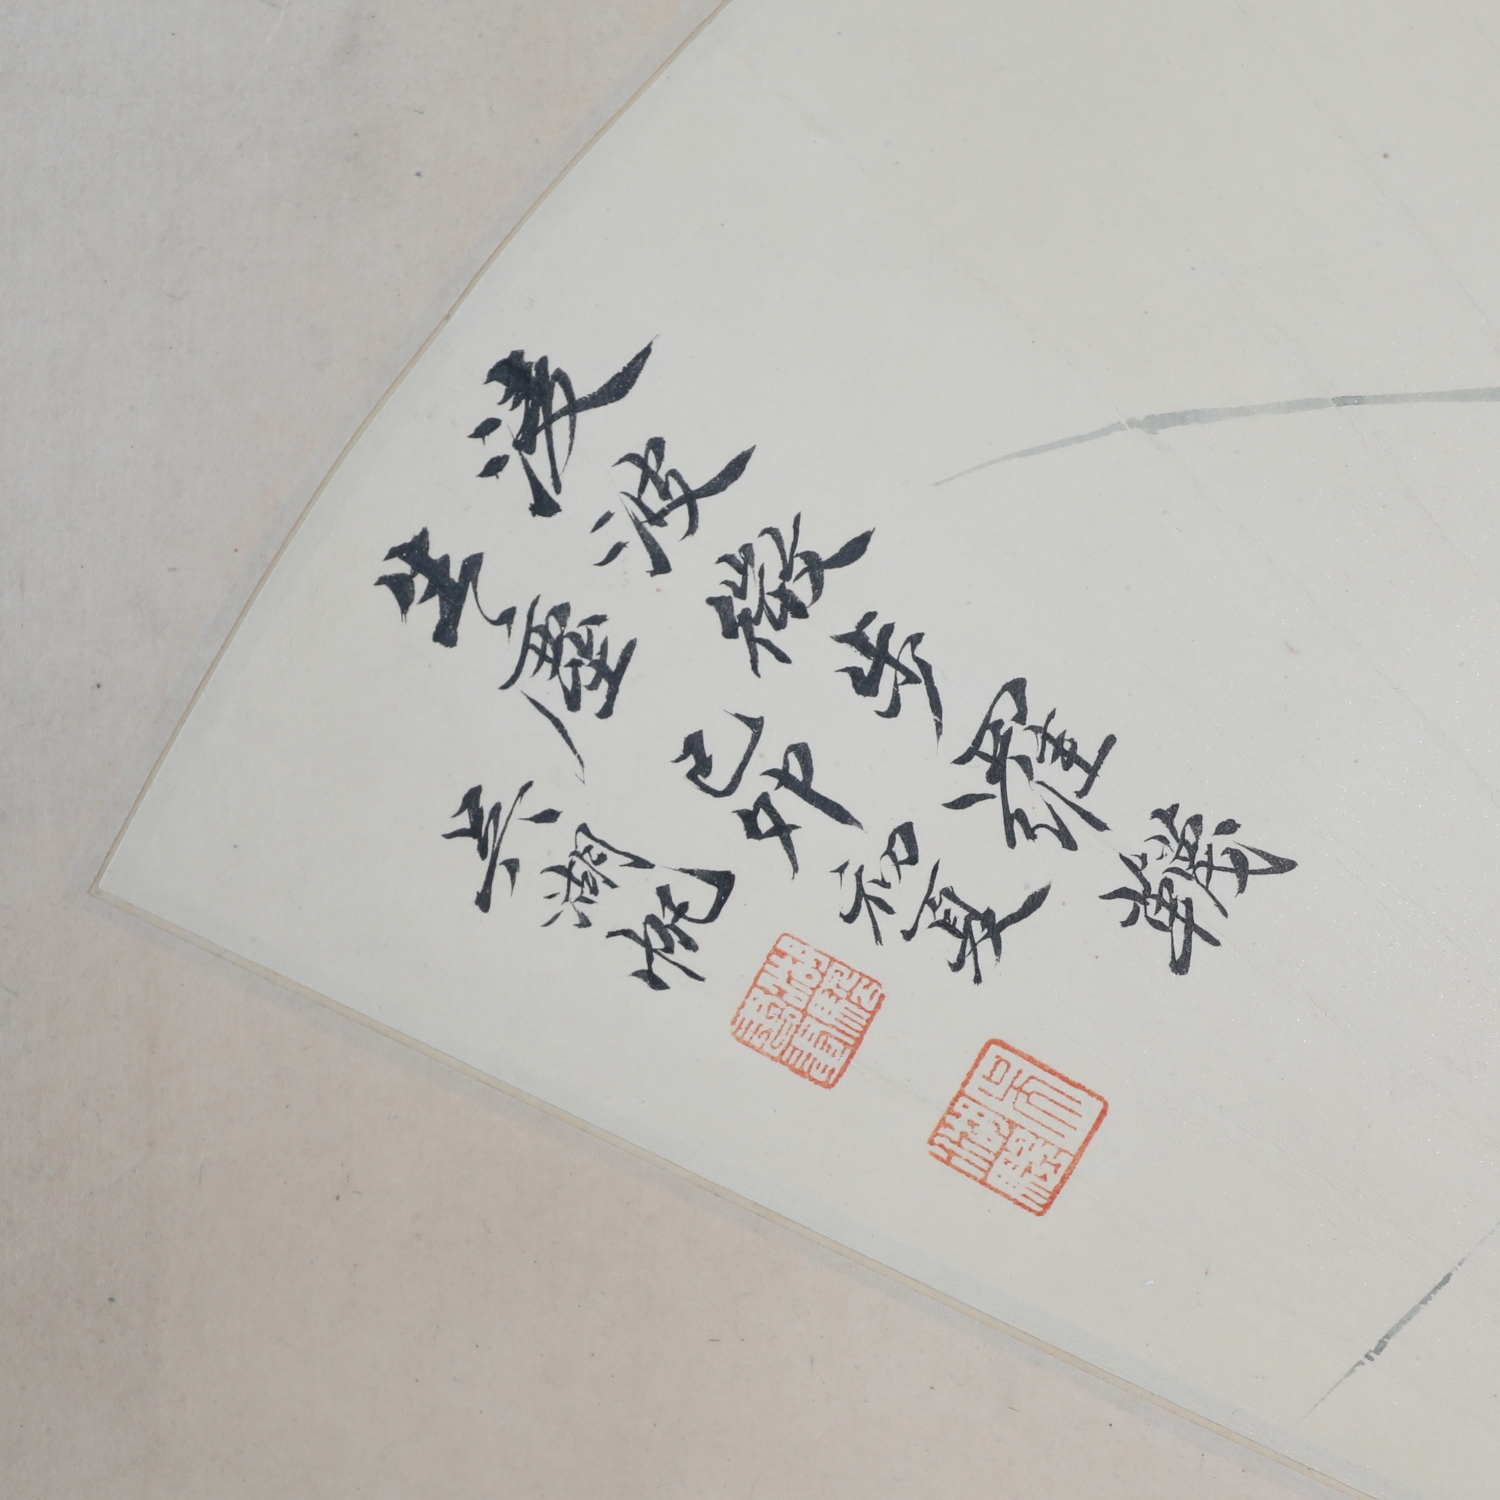 淩波微步羅韤
生塵己卯初夏
吳湖帆